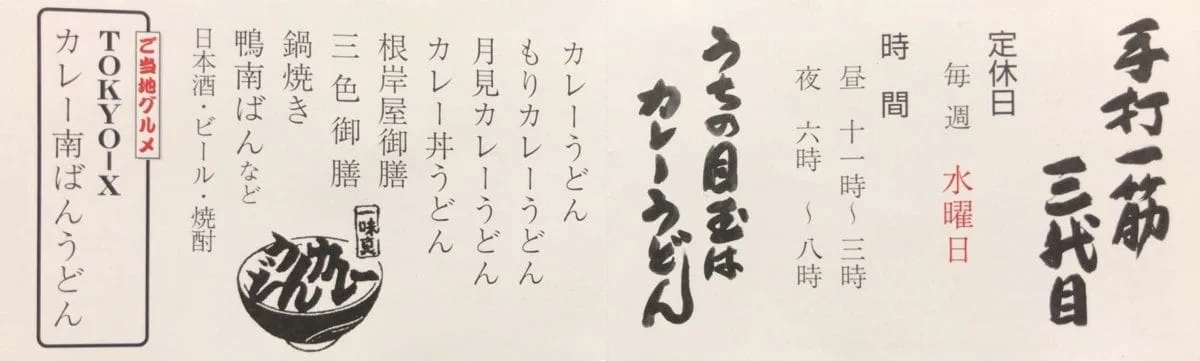 手打一筋
三代目
定休日
毎週 水曜日
時間
昼 十一時～三時
夜 六時 ～八時
うちの目玉は
カレーうどん
カレーうどん
もりカレーうどん
月見カレーうどん
カレー丼うどん
根岸屋御膳
三色御膳
鍋焼き
鴨南ばんなど
日本酒・ビール・焼酎
一味真
カレー
うどん
ご当地グルメ
TOKYO-X
カレー南ばんうどん